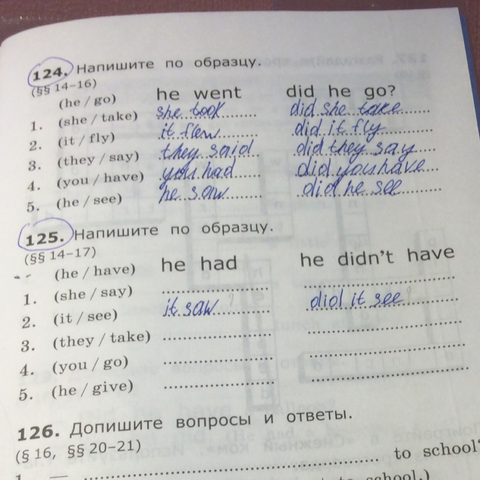 124. Напишите по образцу.
(§§ 14–16)
(he / go) he went did he go?
1. (she / take) she took did she take
2. (it / fly) it flew did it fly
3. (they / say) they said did they say
4. (you / have) you had did you have
5. (he / see) he saw did he see
125. Напишите по образцу.
(§§ 14–17)
(he / have) he had he didn't have
1. (she / say)
2. (it / see) it saw did it see
3. (they / take)
4. (you / go)
5. (he / give)
126. Допишите вопросы и ответы.
(§ 16, §§ 20–21)
1. — to school?
to school.)